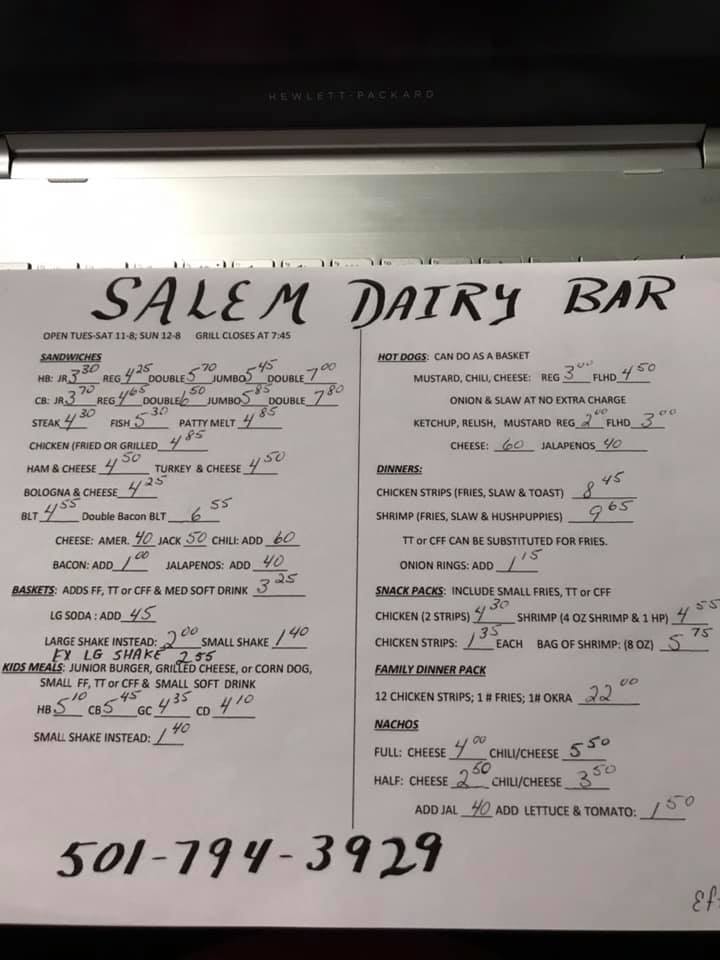 HEWLETT-PACKARD
SALEM DAIRY BAR
OPEN TUES-SAT 11-8; SUN 12-8 GRILL CLOSES AT 7:45
SANDWICHES
HB: JR 3 30 REG 4 25 DOUBLE 5 70 JUMBO 5 45 DOUBLE 7 00
CB: JR 3 70 REG 4 65 DOUBLE 6 50 JUMBO 5 85 DOUBLE 7 80
STEAK 4 30 FISH 5 30 PATTY MELT 4 85
CHICKEN (FRIED OR GRILLED 4 85
HAM & CHEESE 4 50 TURKEY & CHEESE 4 50
BOLOGNA & CHEESE 4 25
BLT 4 55 Double Bacon BLT 6 55
CHEESE: AMER. 40 JACK 50 CHILI: ADD 60
BACON: ADD 1 00 JALAPENOS: ADD 40
BASKETS: ADDS FF, TT or CFF & MED SOFT DRINK 3 25
LG SODA : ADD 45
LARGE SHAKE INSTEAD: 2 00 SMALL SHAKE 1 40
EX LG SHAKE 2 55
KIDS MEALS: JUNIOR BURGER, GRILLED CHEESE, or CORN DOG,
SMALL FF, TT or CFF & SMALL SOFT DRINK
HB 5 10 CB 5 45 GC 4 35 CD 4 10
SMALL SHAKE INSTEAD: 1 40
HOT DOGS: CAN DO AS A BASKET
MUSTARD, CHILI, CHEESE: REG 3 00 FLHD 4 50
ONION & SLAW AT NO EXTRA CHARGE
KETCHUP, RELISH, MUSTARD REG 2 00 FLHD 3 00
CHEESE: 60 JALAPENOS 40
DINNERS:
CHICKEN STRIPS (FRIES, SLAW & TOAST) 8 45
SHRIMP (FRIES, SLAW & HUSHPUPPIES) 9 65
TT or CFF CAN BE SUBSTITUTED FOR FRIES.
ONION RINGS: ADD 1 15
SNACK PACKS: INCLUDE SMALL FRIES, TT or CFF
CHICKEN (2 STRIPS) 4 30 SHRIMP (4 OZ SHRIMP & 1 HP) 4 55
CHICKEN STRIPS: 1 35 EACH BAG OF SHRIMP: (8 OZ) 5 75
FAMILY DINNER PACK
12 CHICKEN STRIPS; 1 # FRIES; 1# OKRA 22 00
NACHOS
FULL: CHEESE 4 00 CHILI/CHEESE 5 50
HALF: CHEESE 2 50 CHILI/CHEESE 3 50
ADD JAL 40 ADD LETTUCE & TOMATO: 1 50
501-794-3929